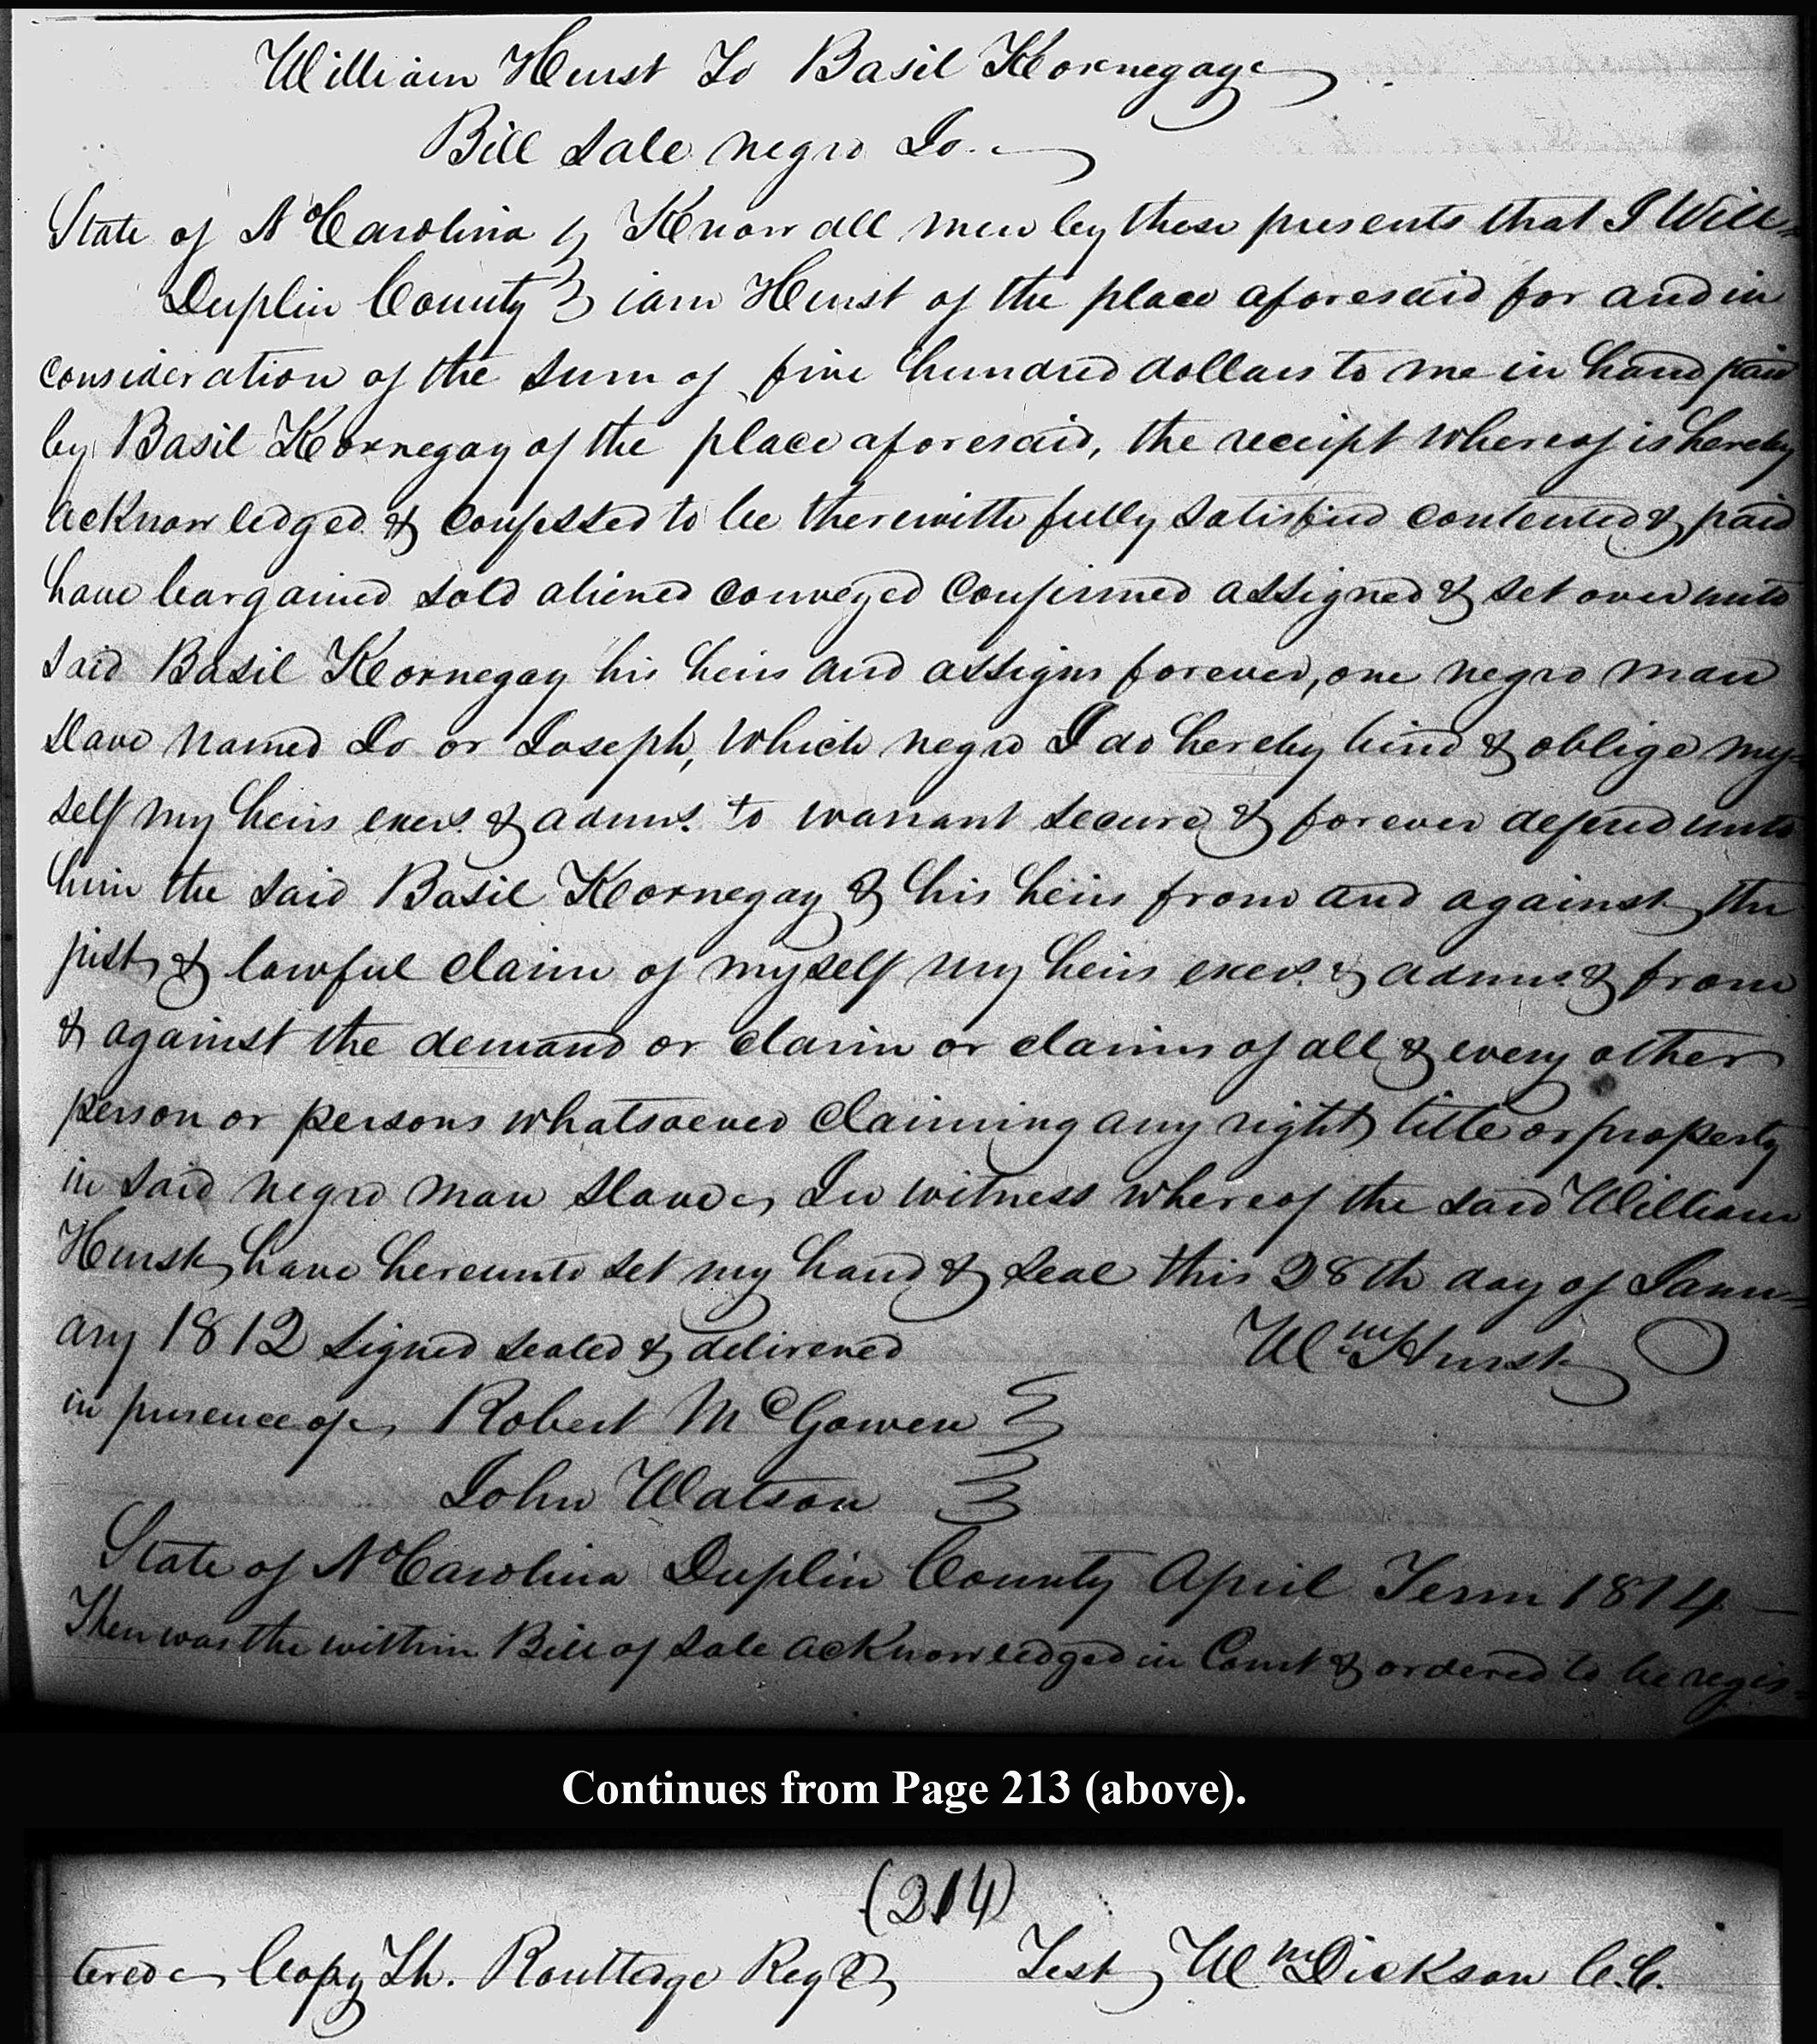 William Hurst To Basil Kornegay
Bill Sale negro Jo.
State of No Carolina } Know all men by these presents that I Will=
Duplin County } iam Hurst of the place aforesaid for and in
consideration of the sum of five hundred dollars to me in hand paid
by Basil Kornegay of the place aforesaid, the receipt whereof is hereby
acknowledged & confessed to be therewith fully satisfied contented & paid
have bargained sold aliened conveyed confirmed assigned & set over unto
said Basil Kornegay his heirs and assigns forever, one negro man
slave named Jo or Joseph, which negro I do hereby bind & oblige my=
self my heirs exers. & admrs. to warrant secure & forever defend unto
him the said Basil Kornegay & his heirs from and against the
just & lawful claim of myself my heirs exers. & admrs. & from
& against the demand or claim or claims of all & every other
person or persons whatsoever claiming any right title or property
in said negro man slave, In witness whereof the said William
Hurst have hereunto set my hand & seal this 28th day of Janu=
ary 1812 Signed sealed & delivered Wm Hurst
in presence of Robert McGowen }
John Watson }
State of No Carolina Duplin County April Term 1814
Then was the within Bill of Sale acknowledged in Court & ordered to be regis=
Continues from Page 213 (above).
(214)
tered Copy Th. Routledge Reg Test Wm Dickson C.C.